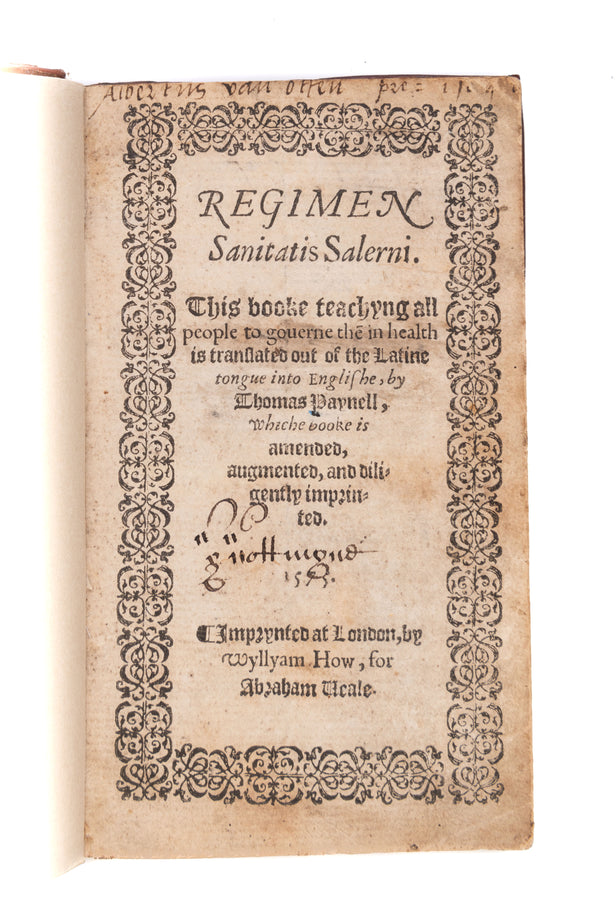 Albertus van otten pre:
REGIMEN
Sanitatis Salerni.
This booke teachyng all
people to gouerne thē in health
is translated out of the Latine
tongue into Engliſhe, by
Thomas Paynell,
whiche booke is
amended,
augmented, and dili-
gently imprin-
ted.
¶Imprynted at London, by
Wyllyam How, for
Abraham Ueale.